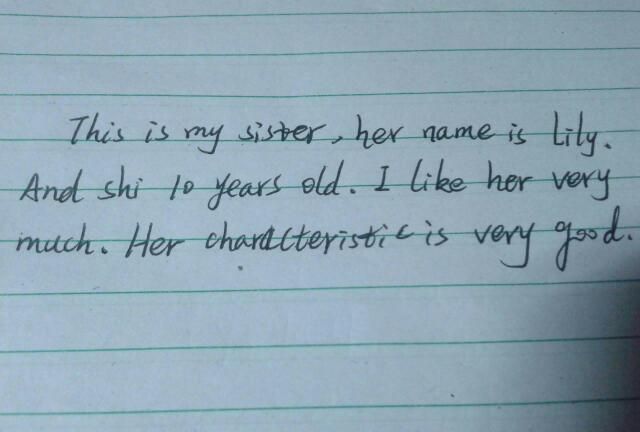 This is my sister, her name is Lily.
And shi 10 years old. I like her very
much. Her characteristic is very good.